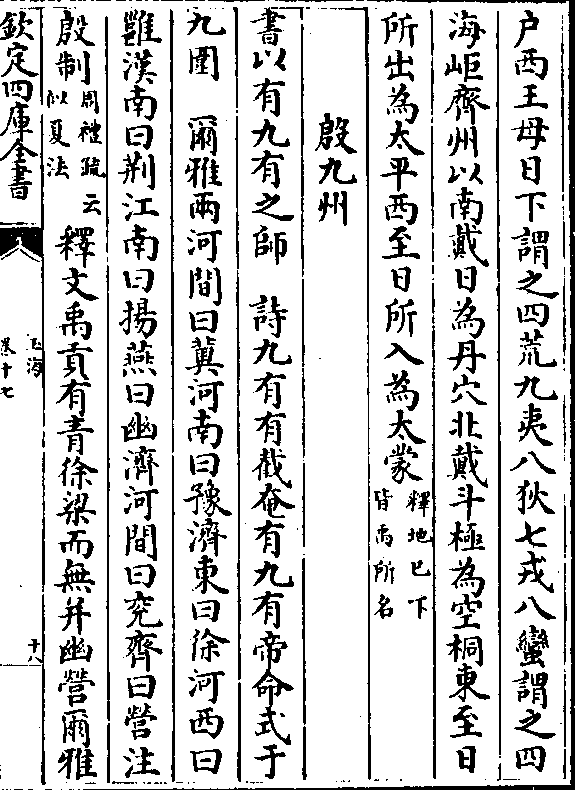 户西王母日下謂之四荒九夷八狄七戎八蠻謂之四
海岠齊州以南戴日為丹穴北戴斗極為空桐東至日
所出為太平西至日所入為太蒙釋地巳下皆禹所名
殷九州
書以有九有之師　詩九有有截奄有九有帝命式于
九圍　爾雅兩河間曰冀河南曰豫濟東曰徐河西曰
雝漢南曰荆江南曰揚燕曰幽濟河間曰兖齊曰營注
殷制周禮疏云似夏法　釋文禹貢有青徐梁而無并幽營爾雅
欽定四庫全書
玉海
卷十七
十八